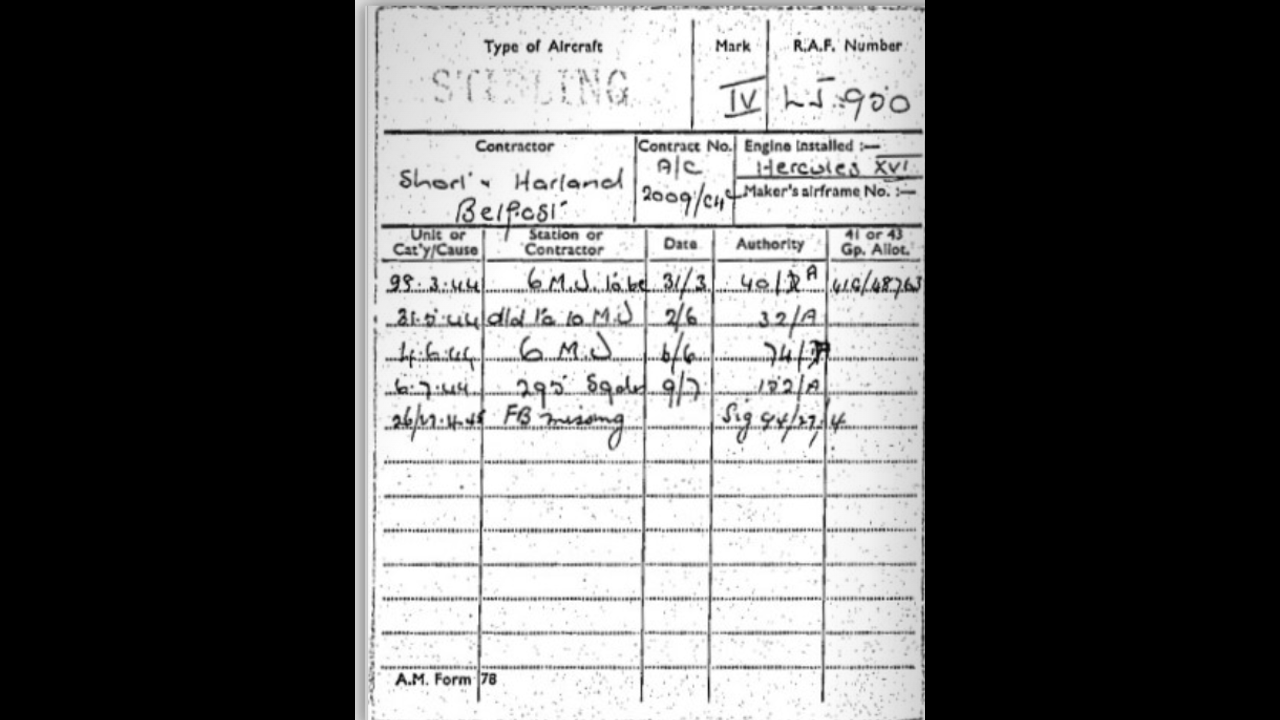 Type of Aircraft Mark R.A.F. Number
STIRLING IV LJ.950
Contractor Contract No. Engine Installed :—
Short & Harland A/C Hercules XVI
Belfast 2009/C4C Maker's airframe No. :—
Unit or Cat'y/Cause Station or Contractor Date Authority 41 or 43 Gp. Allot.
3.44 6 M.U. 31/3 40/ A 41G/48763
31.5.44 d/d to 10 M.U 2/6 32/A
4.6.44 6 M U 6/6 74/
6.7.44 295 Sqdn 9/7 152/A
26/27.4.45 FB missing Sig 27/4
A.M. Form 78